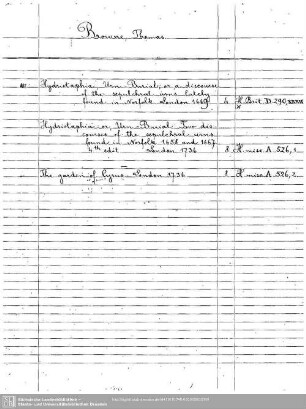 Browne, Thomas.
Hydriotaphia, Urn-Burial, or a discourse
of the sepulchral urns lately
found in Norfolk. London 1669 4 H. Brit. D. 290,
Hydriotaphia: or, Urn-Burial. Two dis-
courses of the sepulchral urns
found in Norfolk 1658 and 1667
4th edit. London 1736 8 H. misc. A. 526, 1.
The garden of Cyrus. London 1736 8 H. misc. A. 526, 2.
Sächsische Landesbibliothek -
Staats- und Universitätsbibliothek Dresden